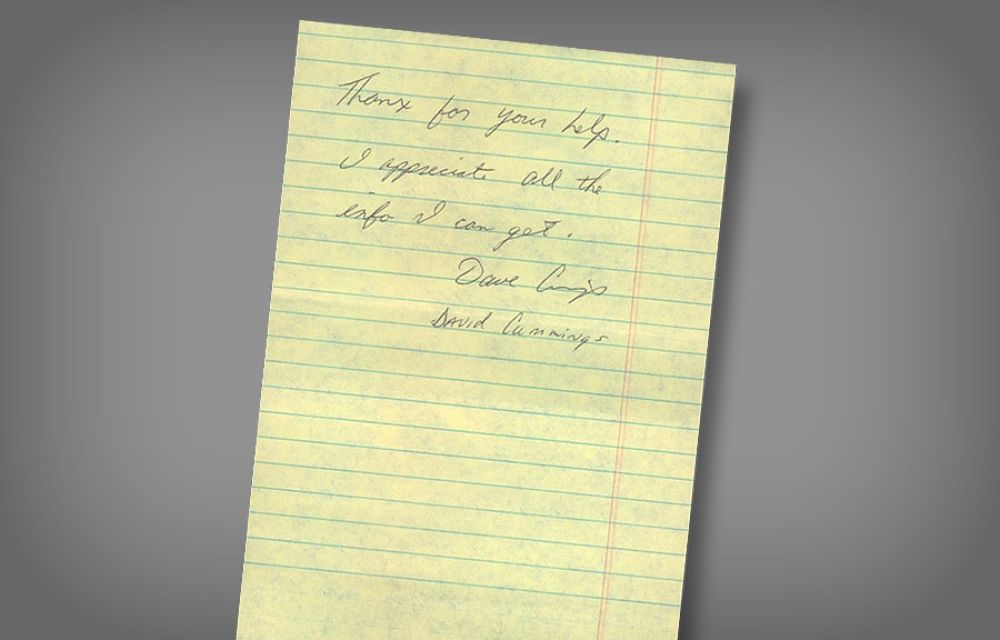 Thanx for your help.
I appreciate all the
info I can get.
Dave Cmgs
David Cummings